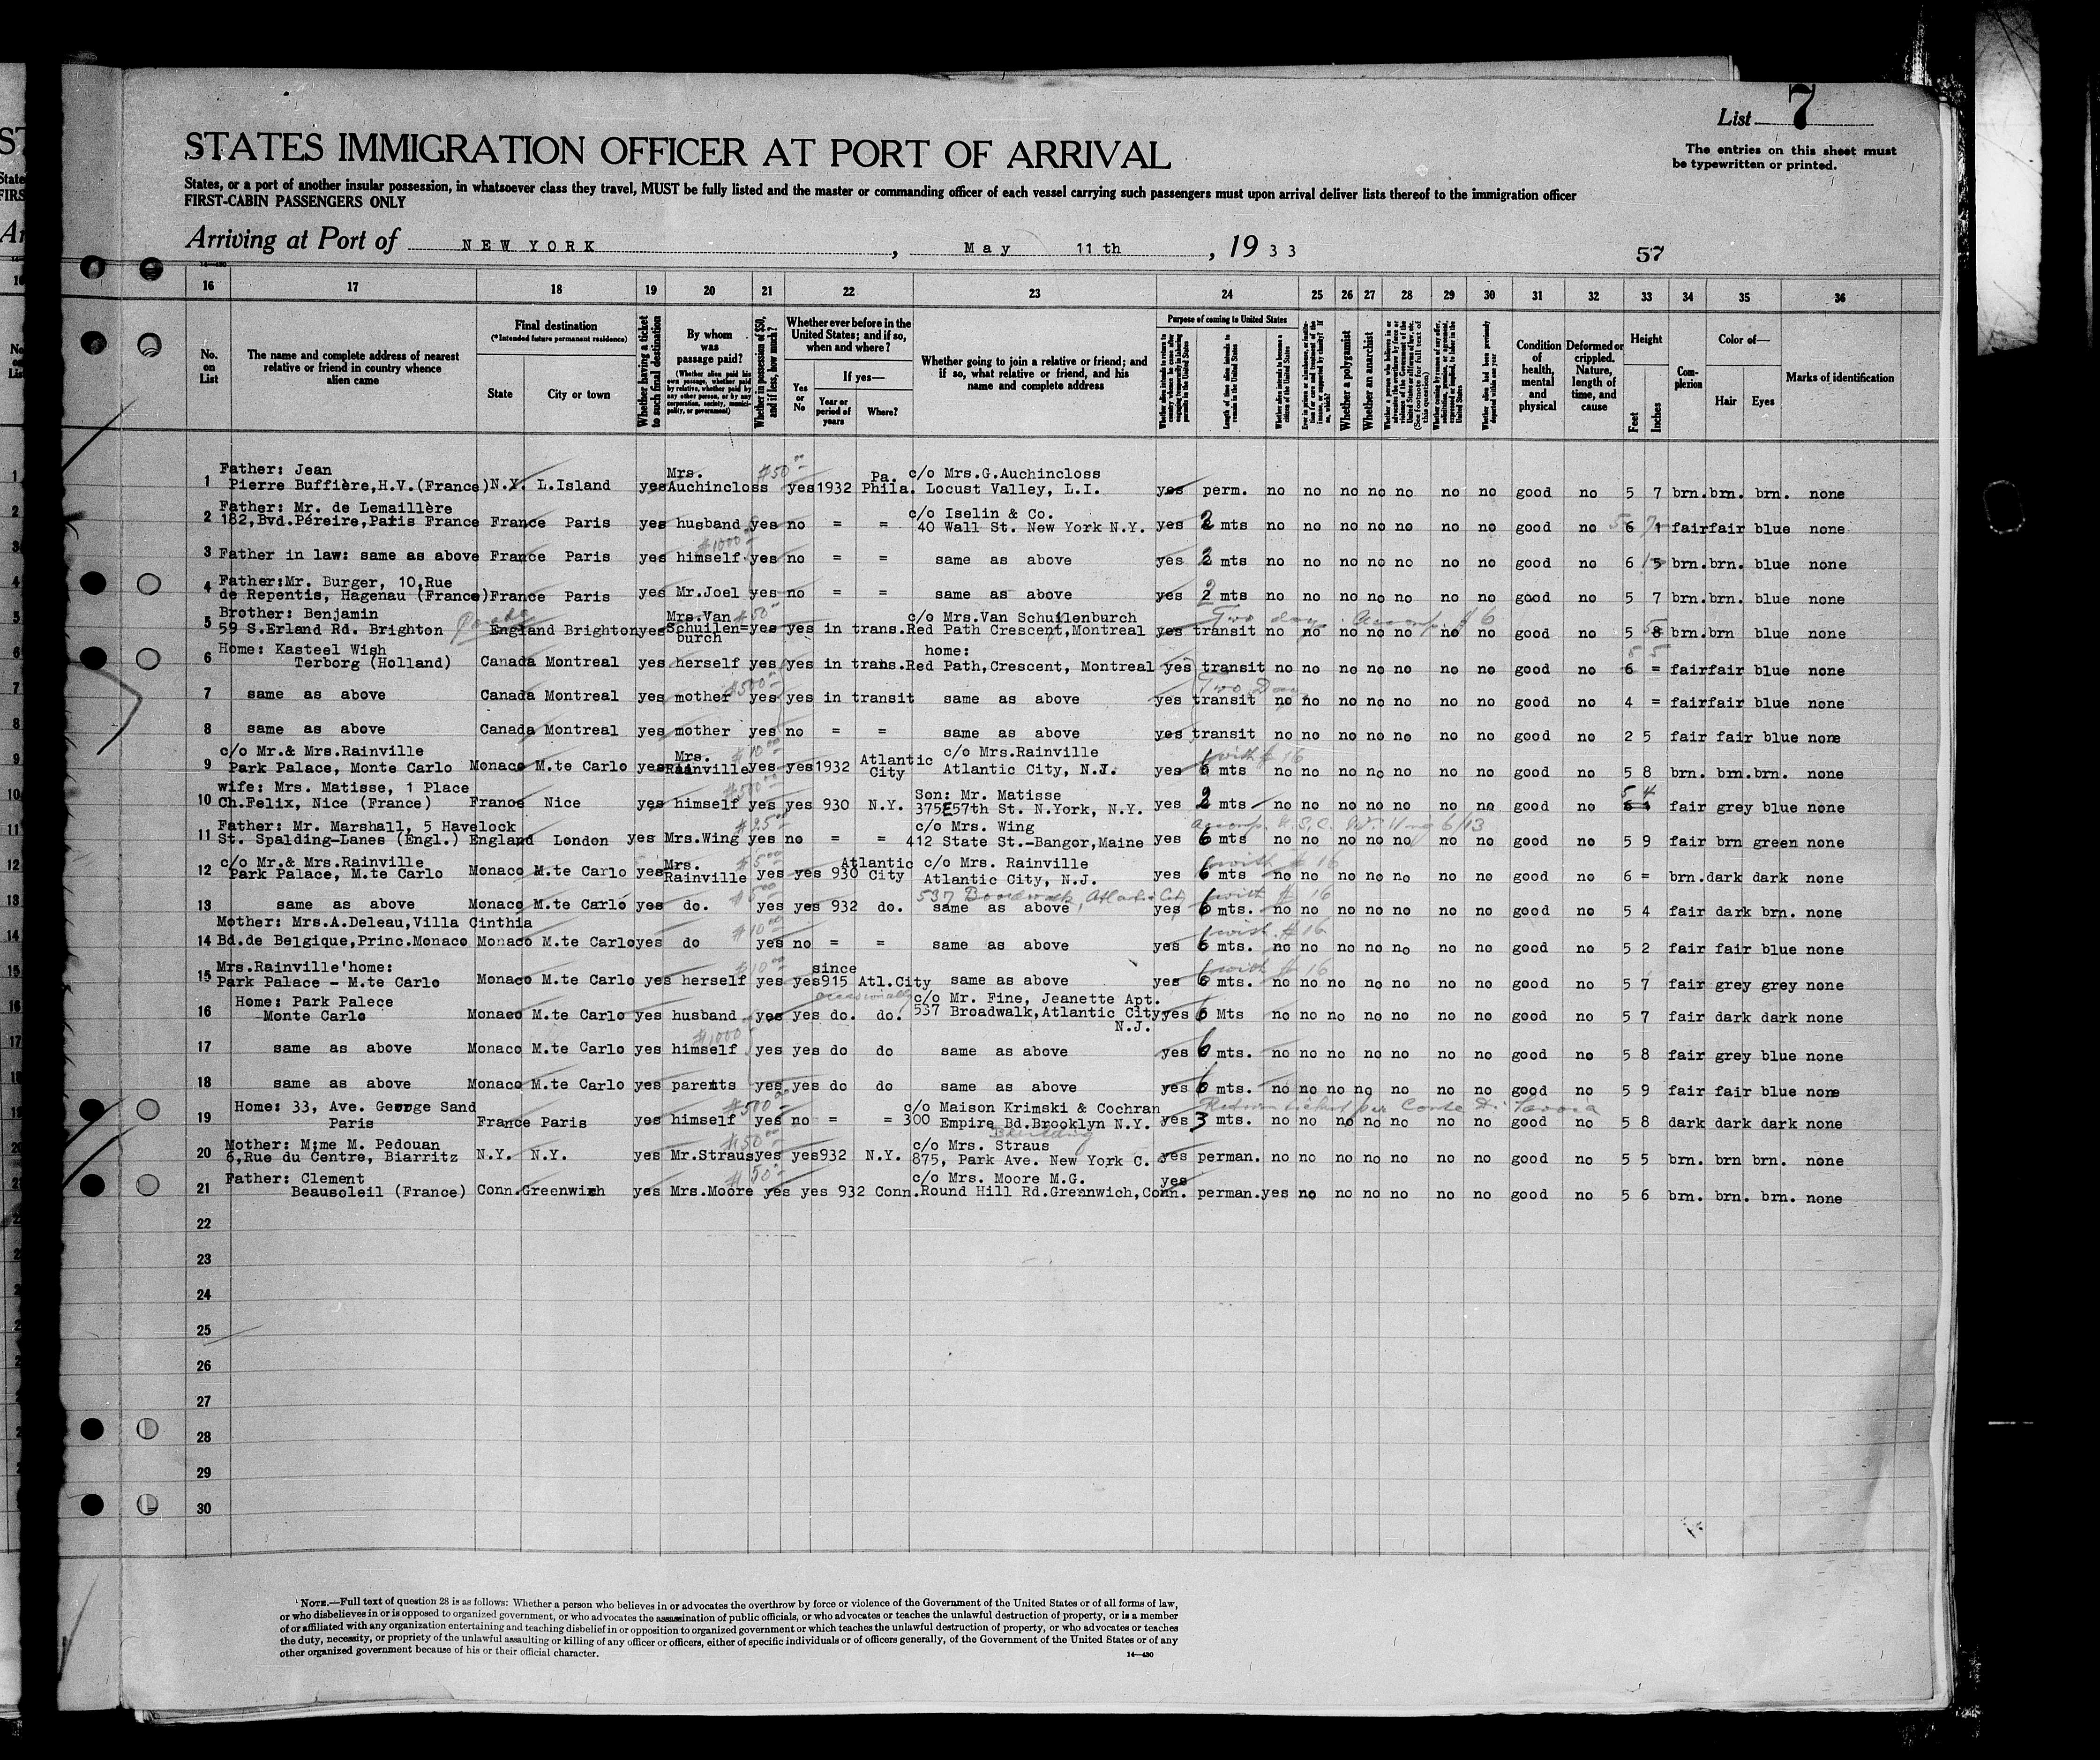 List 7
The entries on this sheet must
be typewritten or printed.
STATES IMMIGRATION OFFICER AT PORT OF ARRIVAL
States, or a port of another insular possession, in whatsoever class they travel, MUST be fully listed and the master or commanding officer of each vessel carrying such passengers must upon arrival deliver lists thereof to the immigration officer
FIRST-CABIN PASSENGERS ONLY
Arriving at Port of NEW YORK, May 11 th, 19 3 3
57
16 17 18 19 20 21 22 23 24 25 26 27 28 29 30 31 32 33 34 35 36
No. on List
The name and complete address of nearest relative or friend in country whence alien came
Final destination
(*Intended future permanent residence)
State
City or town
Whether having a ticket to such final destination
By whom was passage paid?
(Whether alien paid his own passage, whether paid by relative, whether paid by any other person, or by any corporation, society, municipality, or government)
Whether in possession of $50, and if less, how much?
Whether ever before in the United States; and if so, when and where?
Yes or No
If yes—
Year or period of years
Where?
Whether going to join a relative or friend; and if so, what relative or friend, and his name and complete address
Purpose of coming to United States
Length of time alien intends to remain in the United States
Whether alien intends to become a citizen of the United States
Whether a polygamist
Whether an anarchist
Whether alien had been previously deported within one year
Condition of health, mental and physical
Deformed or crippled. Nature, length of time, and cause
Height
Feet
Inches
Complexion
Color of—
Hair
Eyes
Marks of identification
Father: Jean Mrs. $50 00 Pa. c/o Mrs.G.Auchincloss
1 Pierre Buffière,H.V.(France) N.Y. L.Island yes Auchincloss yes 1932 Phila. Locust Valley, L.I. yes perm. no no no no no no no good no 5 7 brn. brn. brn. none
Father: Mr. de Lemaillère c/o Iselin & Co.
2 182,Bvd.Péreire,Patis France France Paris yes husband yes no = = 40 Wall St. New York N.Y. yes 2 mts no no no no no no no good no 6 1 fair fair blue none
$1000
3 Father in law: same as above France Paris yes himself yes no = = same as above yes 2 mts no no no no no no no good no 6 brn. brn. blue none
Father:Mr. Burger, 10,Rue
4 de Repentis, Hagenau (France) France Paris yes Mr.Joel yes no = = same as above yes 2 mts no no no no no no no good no 5 7 brn. brn. blue none
Brother: Benjamin Mrs.Van $50 c/o Mrs.Van Schuilenburch Two days
5 59 S.Erland Rd. Brighton England Brighton yes Schuilen=burch yes yes in trans. Red Path Crescent,Montreal yes transit no no no no no no no good no 5 8 brn. brn blue none
Home: Kasteel Wish home: 5 5
6 Terborg (Holland) Canada Montreal yes herself yes yes in trans. Red Path,Crescent, Montreal yes transit no no no no no no no good no 6 = fair fair blue none
$500 Two Days
7 same as above Canada Montreal yes mother yes yes in transit same as above yes transit no no no no no no no good no 4 = fair fair blue none
8 same as above Canada Montreal yes mother yes no = = same as above yes transit no no no no no no no good no 2 5 fair fair blue none
c/o Mr.& Mrs.Rainville Mrs. $10 00 Atlantic c/o Mrs.Rainville with # 16
9 Park Palace, Monte Carlo Monaco M.te Carlo yes Rainville yes yes 1932 City Atlantic City, N.J. yes 6 mts no no no no no no no good no 5 8 brn. brn. brn. none
wife: Mrs. Matisse, 1 Place $500 Son: Mr. Matisse 5 4
10 Ch.Felix, Nice (France) France Nice yes himself yes yes 930 N.Y. 375E57th St. N.York, N.Y. yes 2 mts no no no no no no no good no fair grey blue none
Father: Mr. Marshall, 5 Havelock $25 c/o Mrs. Wing
11 St. Spalding-Lanes (Engl.) England London yes Mrs.Wing yes no = = 412 State St.-Bangor,Maine yes 6 mts no no no no no no no good no 5 9 fair brn green none
c/o Mr.& Mrs.Rainville Mrs. $5 00 Atlantic c/o Mrs. Rainville with # 16
12 Park Palace, M.te Carlo Monaco M.te Carlo yes Rainville yes yes 930 City Atlantic City, N.J. yes 6 mts no no no no no no no good no 6 = brn. dark dark none
$5 00 537 Boardwalk, Atlantic City with # 16
13 same as above Monaco M.te Carlo yes do. yes yes 932 do. same as above yes 6 mts. no no no no no no no good no 5 4 fair dark brn. none
Mother: Mrs.A.Deleau,Villa Cinthia $10 00 with # 16
14 Bd.de Belgique,Princ.Monaco Monaco M.te Carlo yes do yes no = = same as above yes 6 mts. no no no no no no no good no 5 2 fair fair blue none
Mrs.Rainville'home: $10 00 since with # 16
15 Park Palace - M.te Carlo Monaco M.te Carlo yes herself yes yes 915 Atl.City same as above yes 6 mts. no no no no no no no good no 5 7 fair grey grey none
Home: Park Palece occasionally c/o Mr. Fine, Jeanette Apt.
16 Monte Carlo Monaco M.te Carlo yes husband yes yes do. do. 537 Broadwalk,Atlantic City yes 6 Mts no no no no no no no good no 5 7 fair dark dark none
N.J.
$1000
17 same as above Monaco M.te Carlo yes himself yes yes do do same as above yes 6 mts. no no no no no no no good no 5 8 fair grey blue none
18 same as above Monaco M.te Carlo yes parents yes yes do do same as above yes 6 mts. no no no no no no no good no 5 9 fair fair blue none
Home: 33, Ave. George Sand $500 c/o Maison Krimski & Cochran Return ticket per Conte Di Savoia
19 Paris France Paris yes himself yes no = = 300 Empire Bd.Brooklyn N.Y. yes 3 mts. no no no no no no no good no 5 8 dark dark dark none
Building
Mother: M;me M. Pedouan $50 00 c/o Mrs. Straus
20 6,Rue du Centre, Biarritz N.Y. N.Y. yes Mr.Straus yes yes 932 N.Y. 875, Park Ave. New York C. yes perman. no no no no no no no good no 5 5 brn. brn brn. none
Father: Clement $50 c/o Mrs. Moore M.G. yes
21 Beausoleil (France) Conn. Greenwich yes Mrs.Moore yes yes 932 Conn. Round Hill Rd.Greenwich,Conn. perman. yes no no no no no no good no 5 6 brn. brn. brn. none
22
23
24
25
26
27
28
29
30
¹ NOTE.—Full text of question 28 is as follows: Whether a person who believes in or advocates the overthrow by force or violence of the Government of the United States or of all forms of law,
or who disbelieves in or is opposed to organized government, or who advocates the assassination of public officials, or who advocates or teaches the unlawful destruction of property, or is a member
of or affiliated with any organization entertaining and teaching disbelief in or opposition to organized government or which teaches the unlawful destruction of property, or who advocates or teaches
the duty, necessity, or propriety of the unlawful assaulting or killing of any officer or officers, either of specific individuals or of officers generally, of the Government of the United States or of any
other organized government because of his or their official character.
14—430